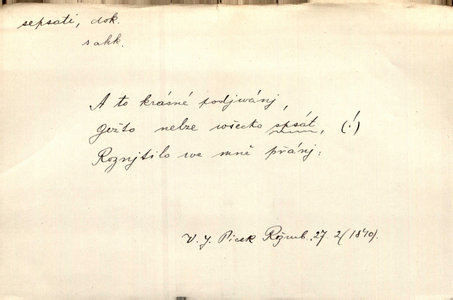 sepsati, dok.
s akk.
A to krásné podjwánj,
gežto nelze wšecko spsát, (!)
Roznjtilo we mně přánj:
V. J. Picek Rýmb. 27. 2 (1840).